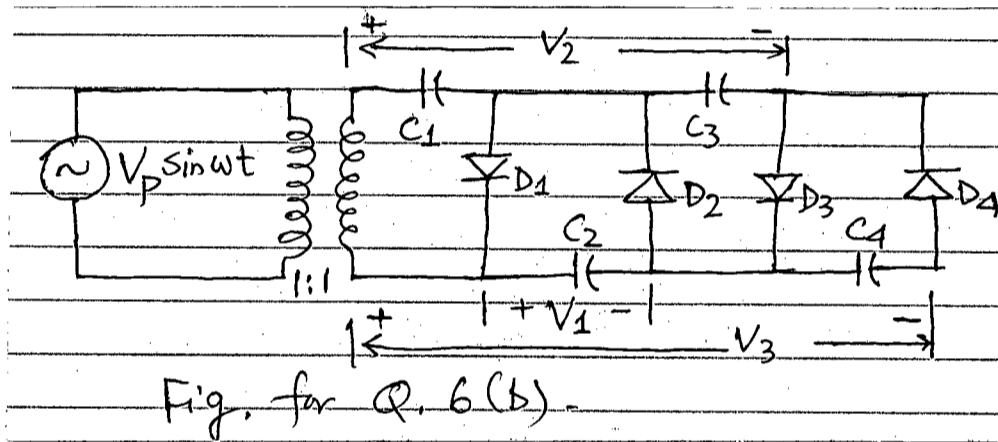 + V2 -
C1 C3
Vp sinωt
D1 D2 D3 D4
C2 C4
1:1
+ V1 -
+ V3 -
Fig. for Q. 6(b).